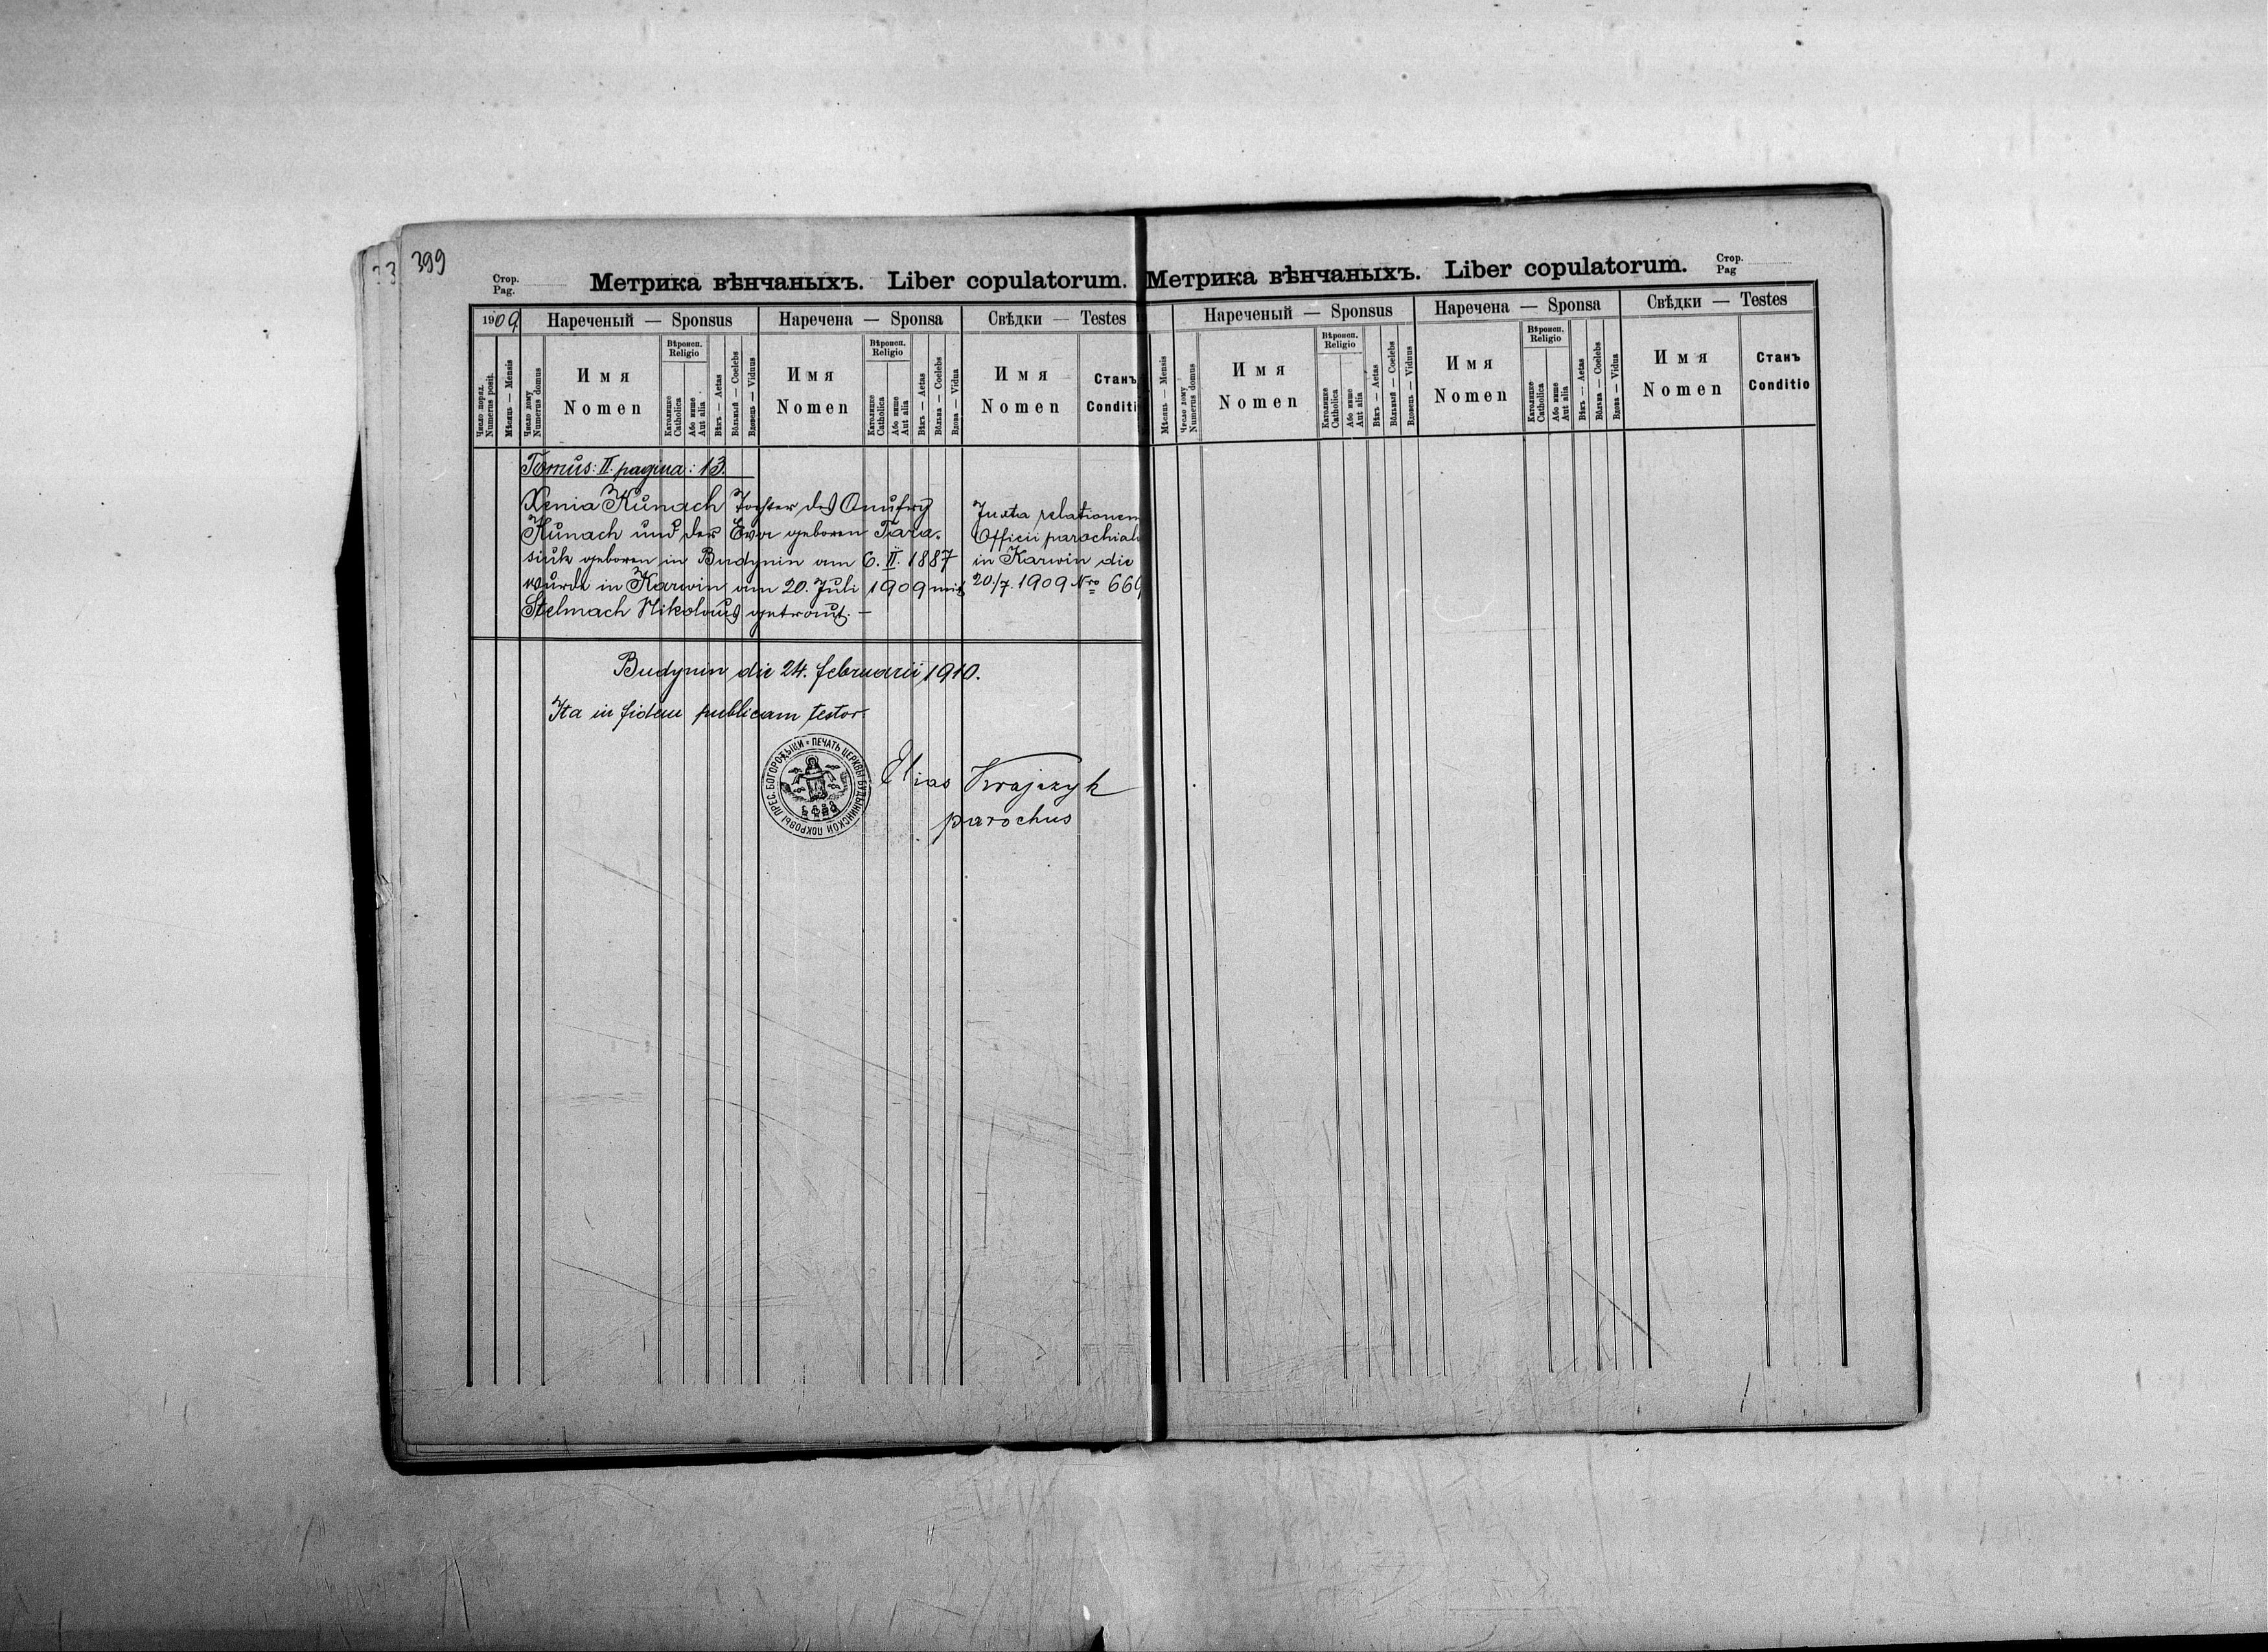 399
Стор.
Pag.
Метрика вѣнчаныхъ. Liber copulatorum.
1909
Нареченый — Sponsus
Наречена — Sponsa
Свѣдки — Testes
Число поряд.
Numerus posit.
Мѣсяць — Mensis
Число дому
Numerus domus
Имя
Nomen
Вѣроисп.
Religio
Католицке
Catholica
Або инше
Aut alia
Вѣкъ — Aetas
Вôльный — Coelebs
Вдовець — Viduus
Имя
Nomen
Вѣроисп.
Religio
Католицке
Catholica
Або инше
Aut alia
Вѣкъ — Aetas
Вôльна — Coelebs
Вдова — Vidua
Имя
Nomen
Станъ
Conditi
Tomus: II. pagina: 13.
Xenia Kunach Tochter des Onufry
Kunach und der Eva geboren Tara-
siuk geboren in Budynin am 6. II. 1887
wurde in Karwin am 20. Juli 1909 mit
Stelmach Nikolaus getraut. —
Juxta relationem
Officii parochial
in Karwin die
20./7. 1909 Nro 669
Budynin die 24. februarii 1910.
Ita in fidem publicam testor.
ПЕЧАТЬ ЦЕРКВЫ БУДЫНИНСКОЙ ПОКРОВЫ ПРЕС. БОГОРОДЫЦИ
Elias Krajczyk
parochus
Метрика вѣнчаныхъ. Liber copulatorum.
Стор.
Pag
Нареченый — Sponsus
Наречена — Sponsa
Свѣдки — Testes
Мѣсяць — Mensis
Число дому
Numerus domus
Имя
Nomen
Вѣроисп.
Religio
Католицке
Catholica
Або инше
Aut alia
Вѣкъ — Aetas
Вôльный — Coelebs
Вдовець — Viduus
Имя
Nomen
Вѣроисп.
Religio
Католицке
Catholica
Або инше
Aut alia
Вѣкъ — Aetas
Вôльна — Coelebs
Вдова — Vidua
Имя
Nomen
Станъ
Conditio